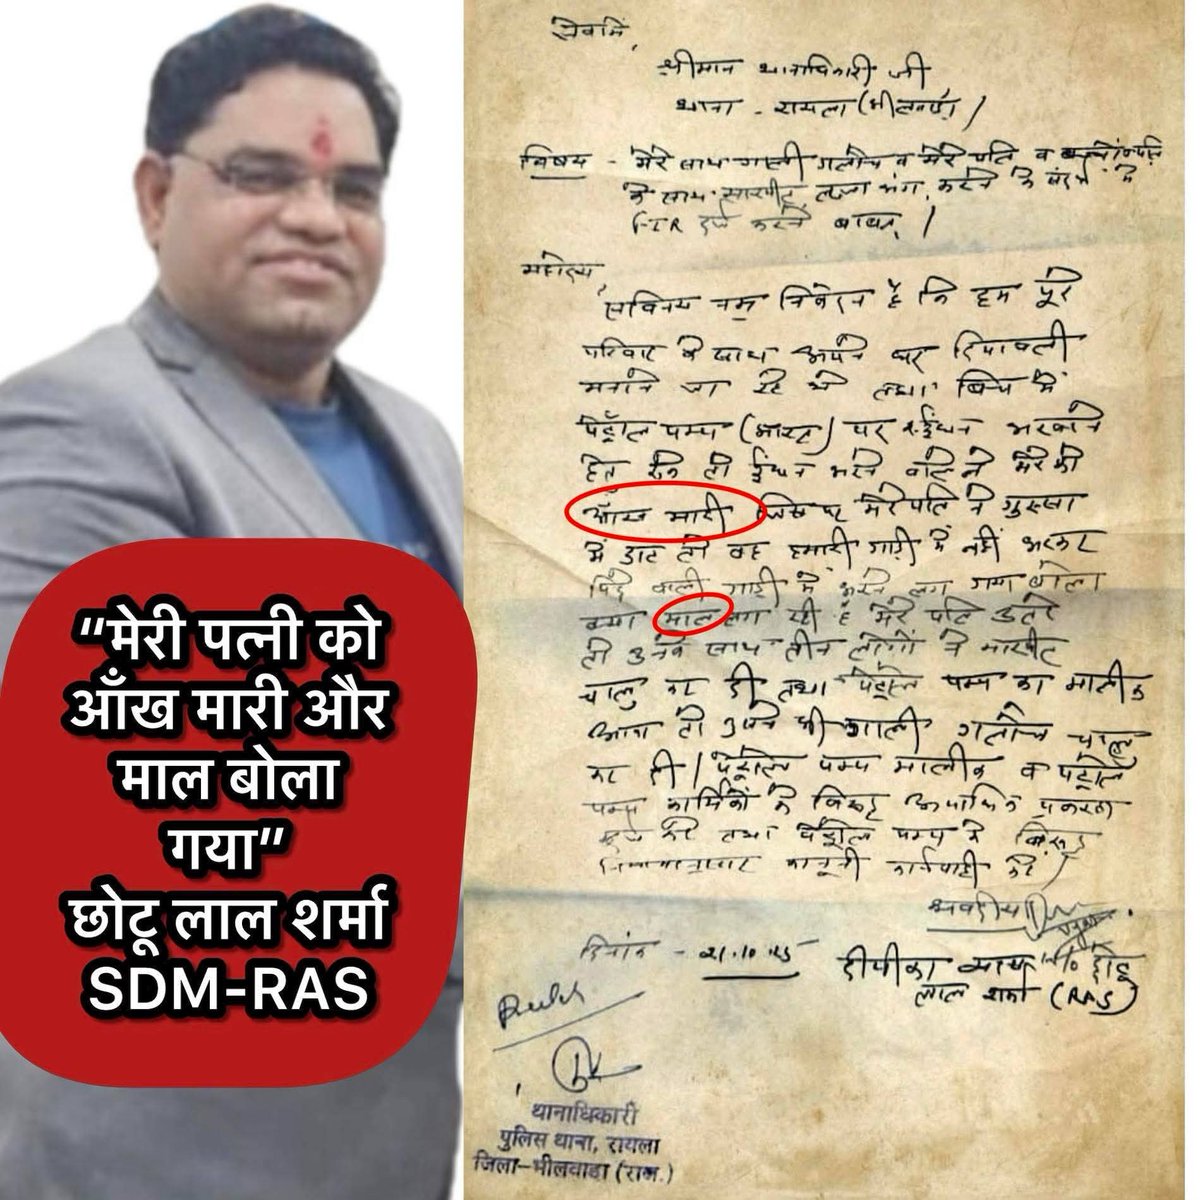 "मेरी पत्नी को
आँख मारी और
माल बोला
गया"
छोटू लाल शर्मा
SDM-RAS
सेवामें,
श्रीमान थानाधिकारी जी
थाना - रायला (भीलवाड़ा)
विषय - मेरे साथ गाली गलोच व मेरे पति व
के साथ मारपीट, लज्जा भंग करने के संदर्भ में
FIR दर्ज करने बाबत् ।
महोदय,
सविनय नम्र निवेदन है कि हम पूरे
परिवार के साथ अपने घर दिपावली
मनाने जा रहे थे तथा बिच में
पेट्रोल पम्प (भारत) पर ईंधन भरवाने
हेतु रुके तो ईंधन भरने वाले ने मेरे को
आँख मारी जिस पर मेरे पति ने गुस्सा
में डाट तो वह हमारी गाड़ी में नहीं भरकर
पिछे वाली गाड़ी में भरने लग गया बोला
क्या माल लग रही है मेरे पति उतरे
तो उनके साथ तीन लोगों ने मारपीट
चालु कर दी तथा पेट्रोल पम्प का मालीक
आया तो उसने भी गाली गलोच चालु
कर दी । पेट्रोल पम्प मालीक व पेट्रोल
पम्प कार्मिकों के विरूद्ध अपराधिक प्रकरण
दर्ज करे तथा पेट्रोल पम्प के विरूद्ध
नियमानुसार कानूनी कार्यवाही करे ।
भवदीया
दिनांक - 21.10.25
दीपीका व्यास W/o छोटु
लाल शर्मा (RAS)
थानाधिकारी
पुलिस थाना, रायला
जिला-भीलवाडा (राज.)